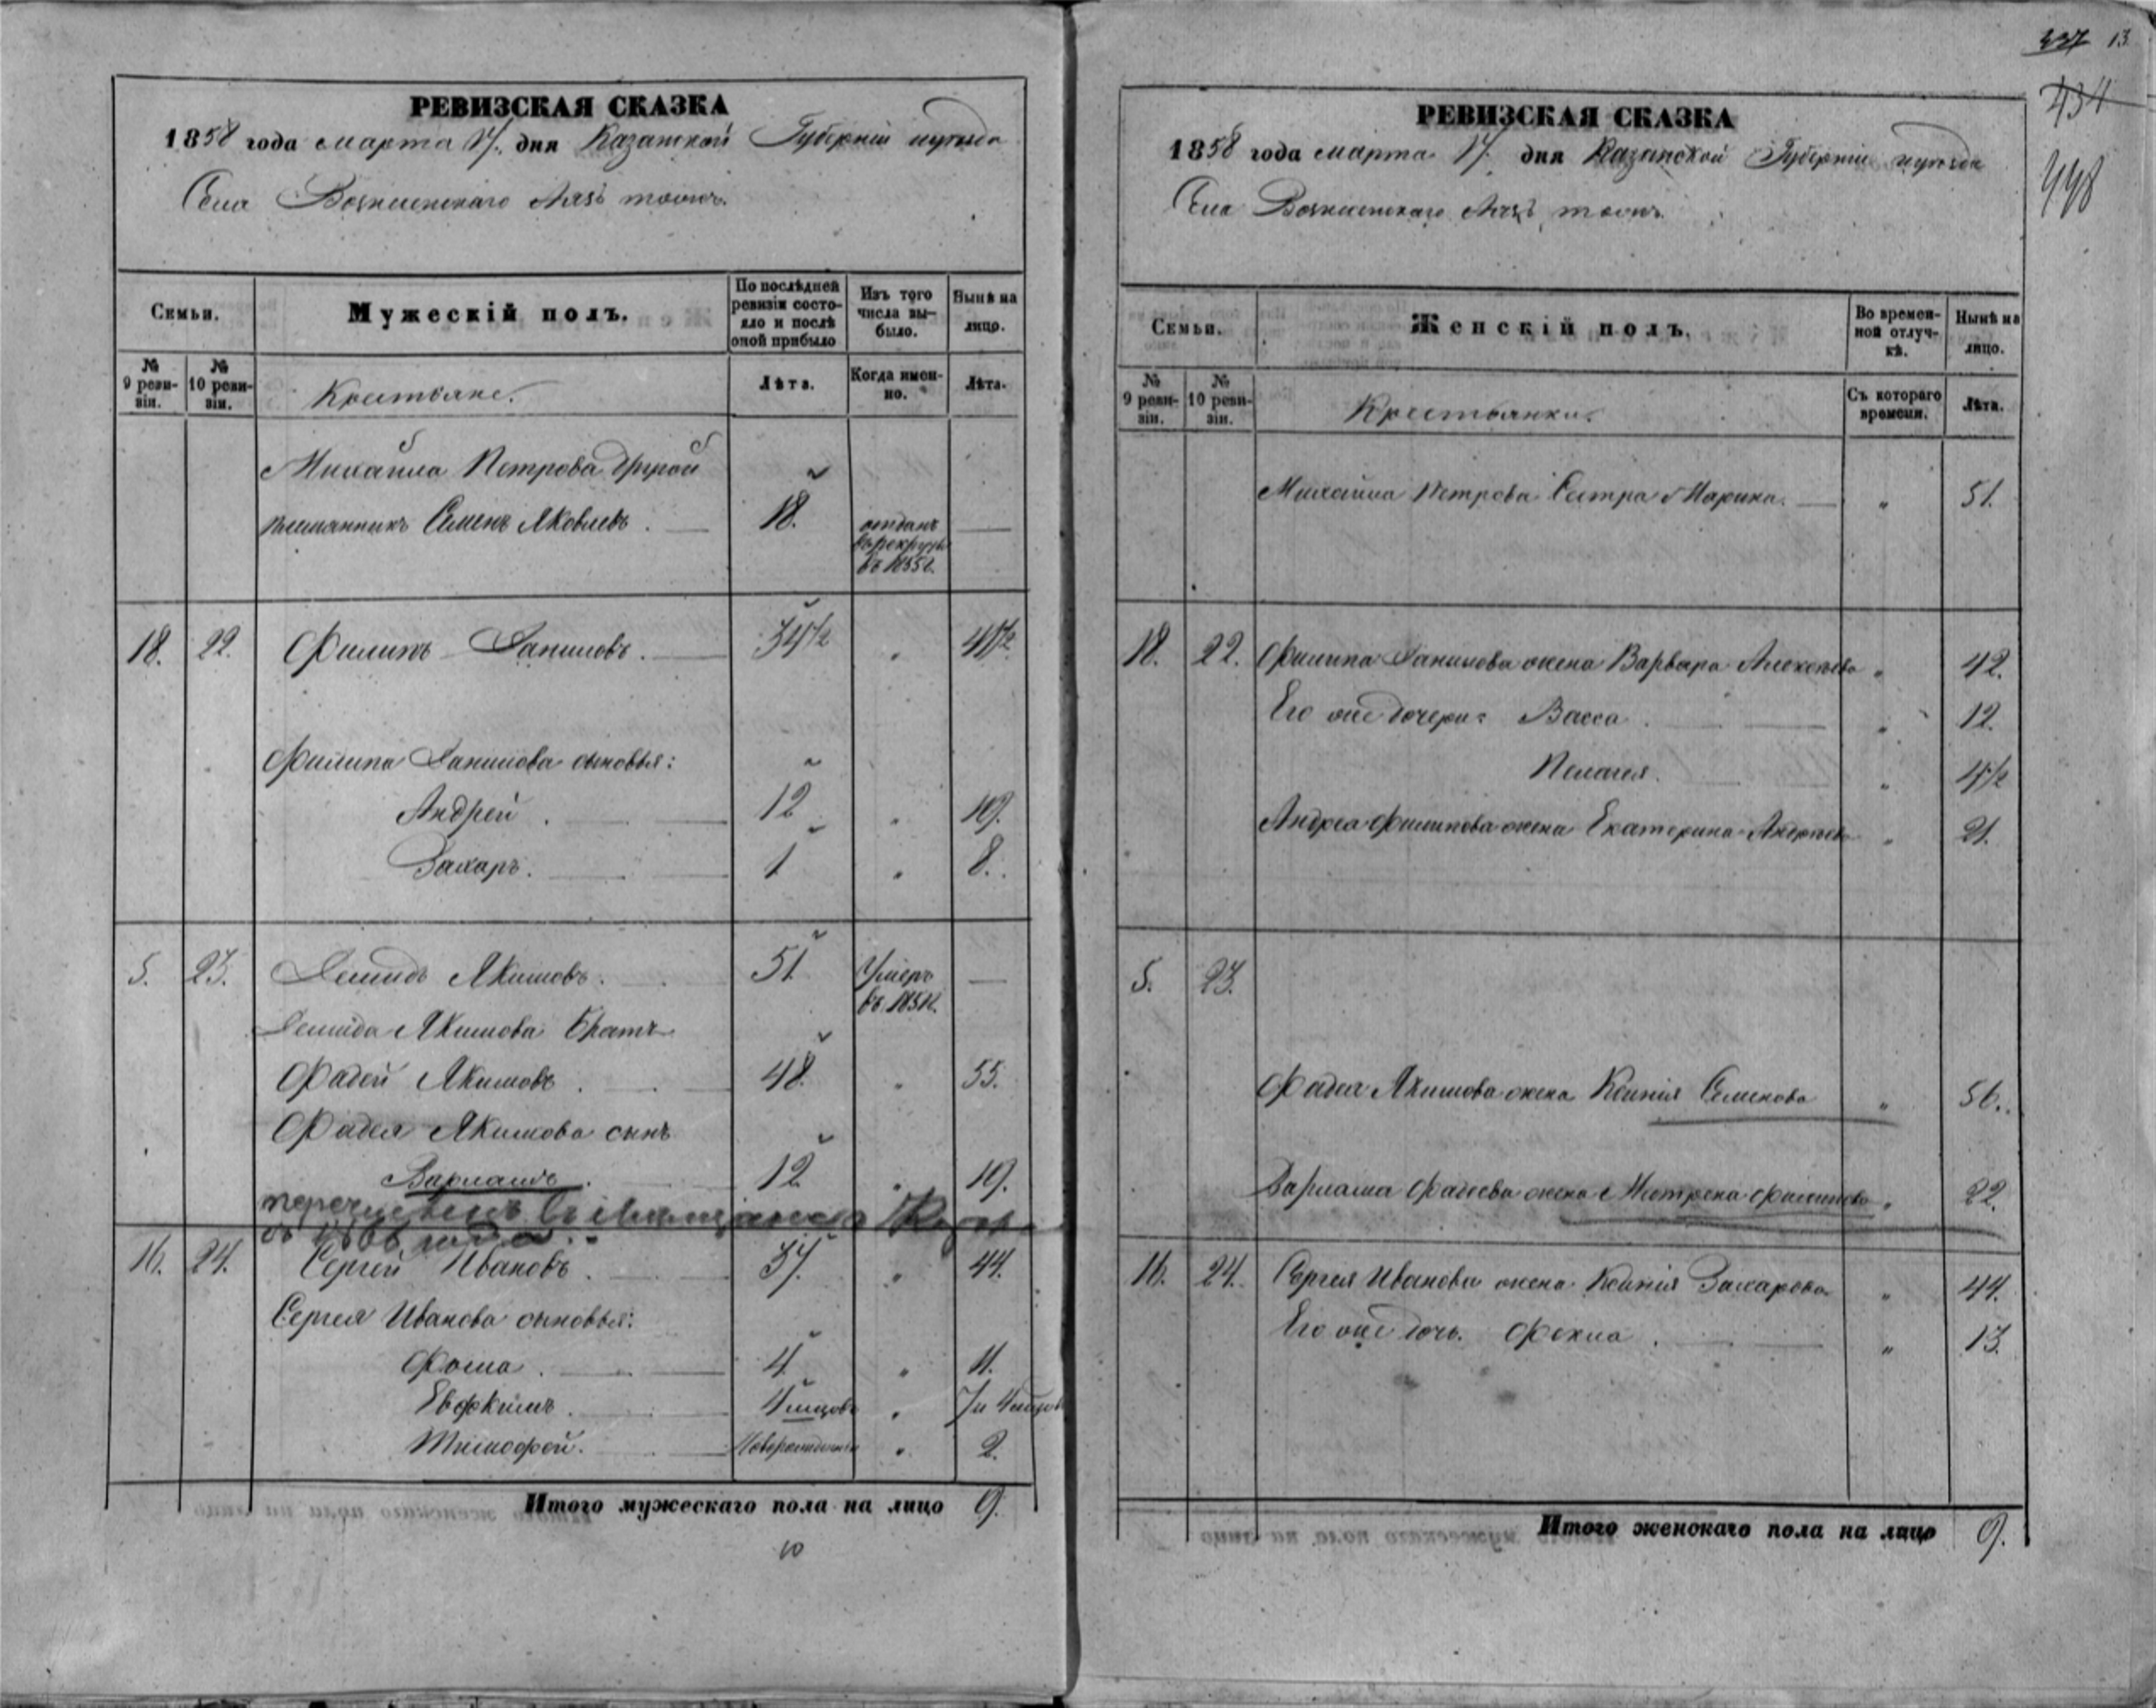 РЕВИЗСКАЯ СКАЗКА
1858 года марта 17. дня Казанской Губерніи и уѣзда
Села Вознесенскаго тожъ.
Семьи.
Мужескій полъ.
По послѣдней ревизіи состояло и послѣ оной прибыло
Изъ того числа выбыло.
Нынѣ на лицо.
№ 9 ревизіи.
№ 10 ревизіи.
Крестьяне.
Лѣта.
Когда именно.
Лѣта.
Михайла Петрова другой
племянникъ Семенъ Яковлевъ. 18. отданъ въ рекруты въ 1855 г. —
18. 22. Филипъ Даниловъ. 34½ " 41½
Филипа Данилова сыновья:
Андрей. 12 " 19.
Захаръ. 1 " 8.
5. 23. Демидъ Якимовъ. 51 Умеръ въ 1851 г. —
Демида Якимова братъ
Фадей Якимовъ. 48. " 55.
Фадея Якимова сынъ
Варламъ. 12 " 19.
перечисленъ въ
16. 24. Сергей Ивановъ. 37. " 44.
Сергея Иванова сыновья:
Фома. 4. " 11.
Евфкимъ. 4 мѣсцовъ " 7 и 4 мѣсцов
Тимофей. Новорожденный " 2.
Итого мужескаго пола на лицо 9.
10
327 13.
434
448
РЕВИЗСКАЯ СКАЗКА
1858 года марта 17. дня Казанской Губерніи и уѣзда
Села Вознесенскаго тожъ.
Семьи.
Женскій полъ.
Во временной отлучкѣ.
Нынѣ на лицо.
№ 9 ревизіи.
№ 10 ревизіи.
Крестьянки.
Съ котораго времени.
Лѣта.
Михайла Петрова Сестра Марина. " 51.
18. 22. Филипа Данилова жена Варвара Алексѣева " 42.
Его же дочери: Васса. " 12.
Пелагея. " 4½
Андрея Филипова жена Екатерина Андрѣева " 21.
5. 23.
Фадея Якимова жена Ксенія Семенова " 56.
Варлама Фадеева жена Матрена Филипова " 22.
16. 24. Сергея Иванова жена Ксенія Захарова " 44.
Его же дочь. Фекла. " 13.
Итого женскаго пола на лицо 9.